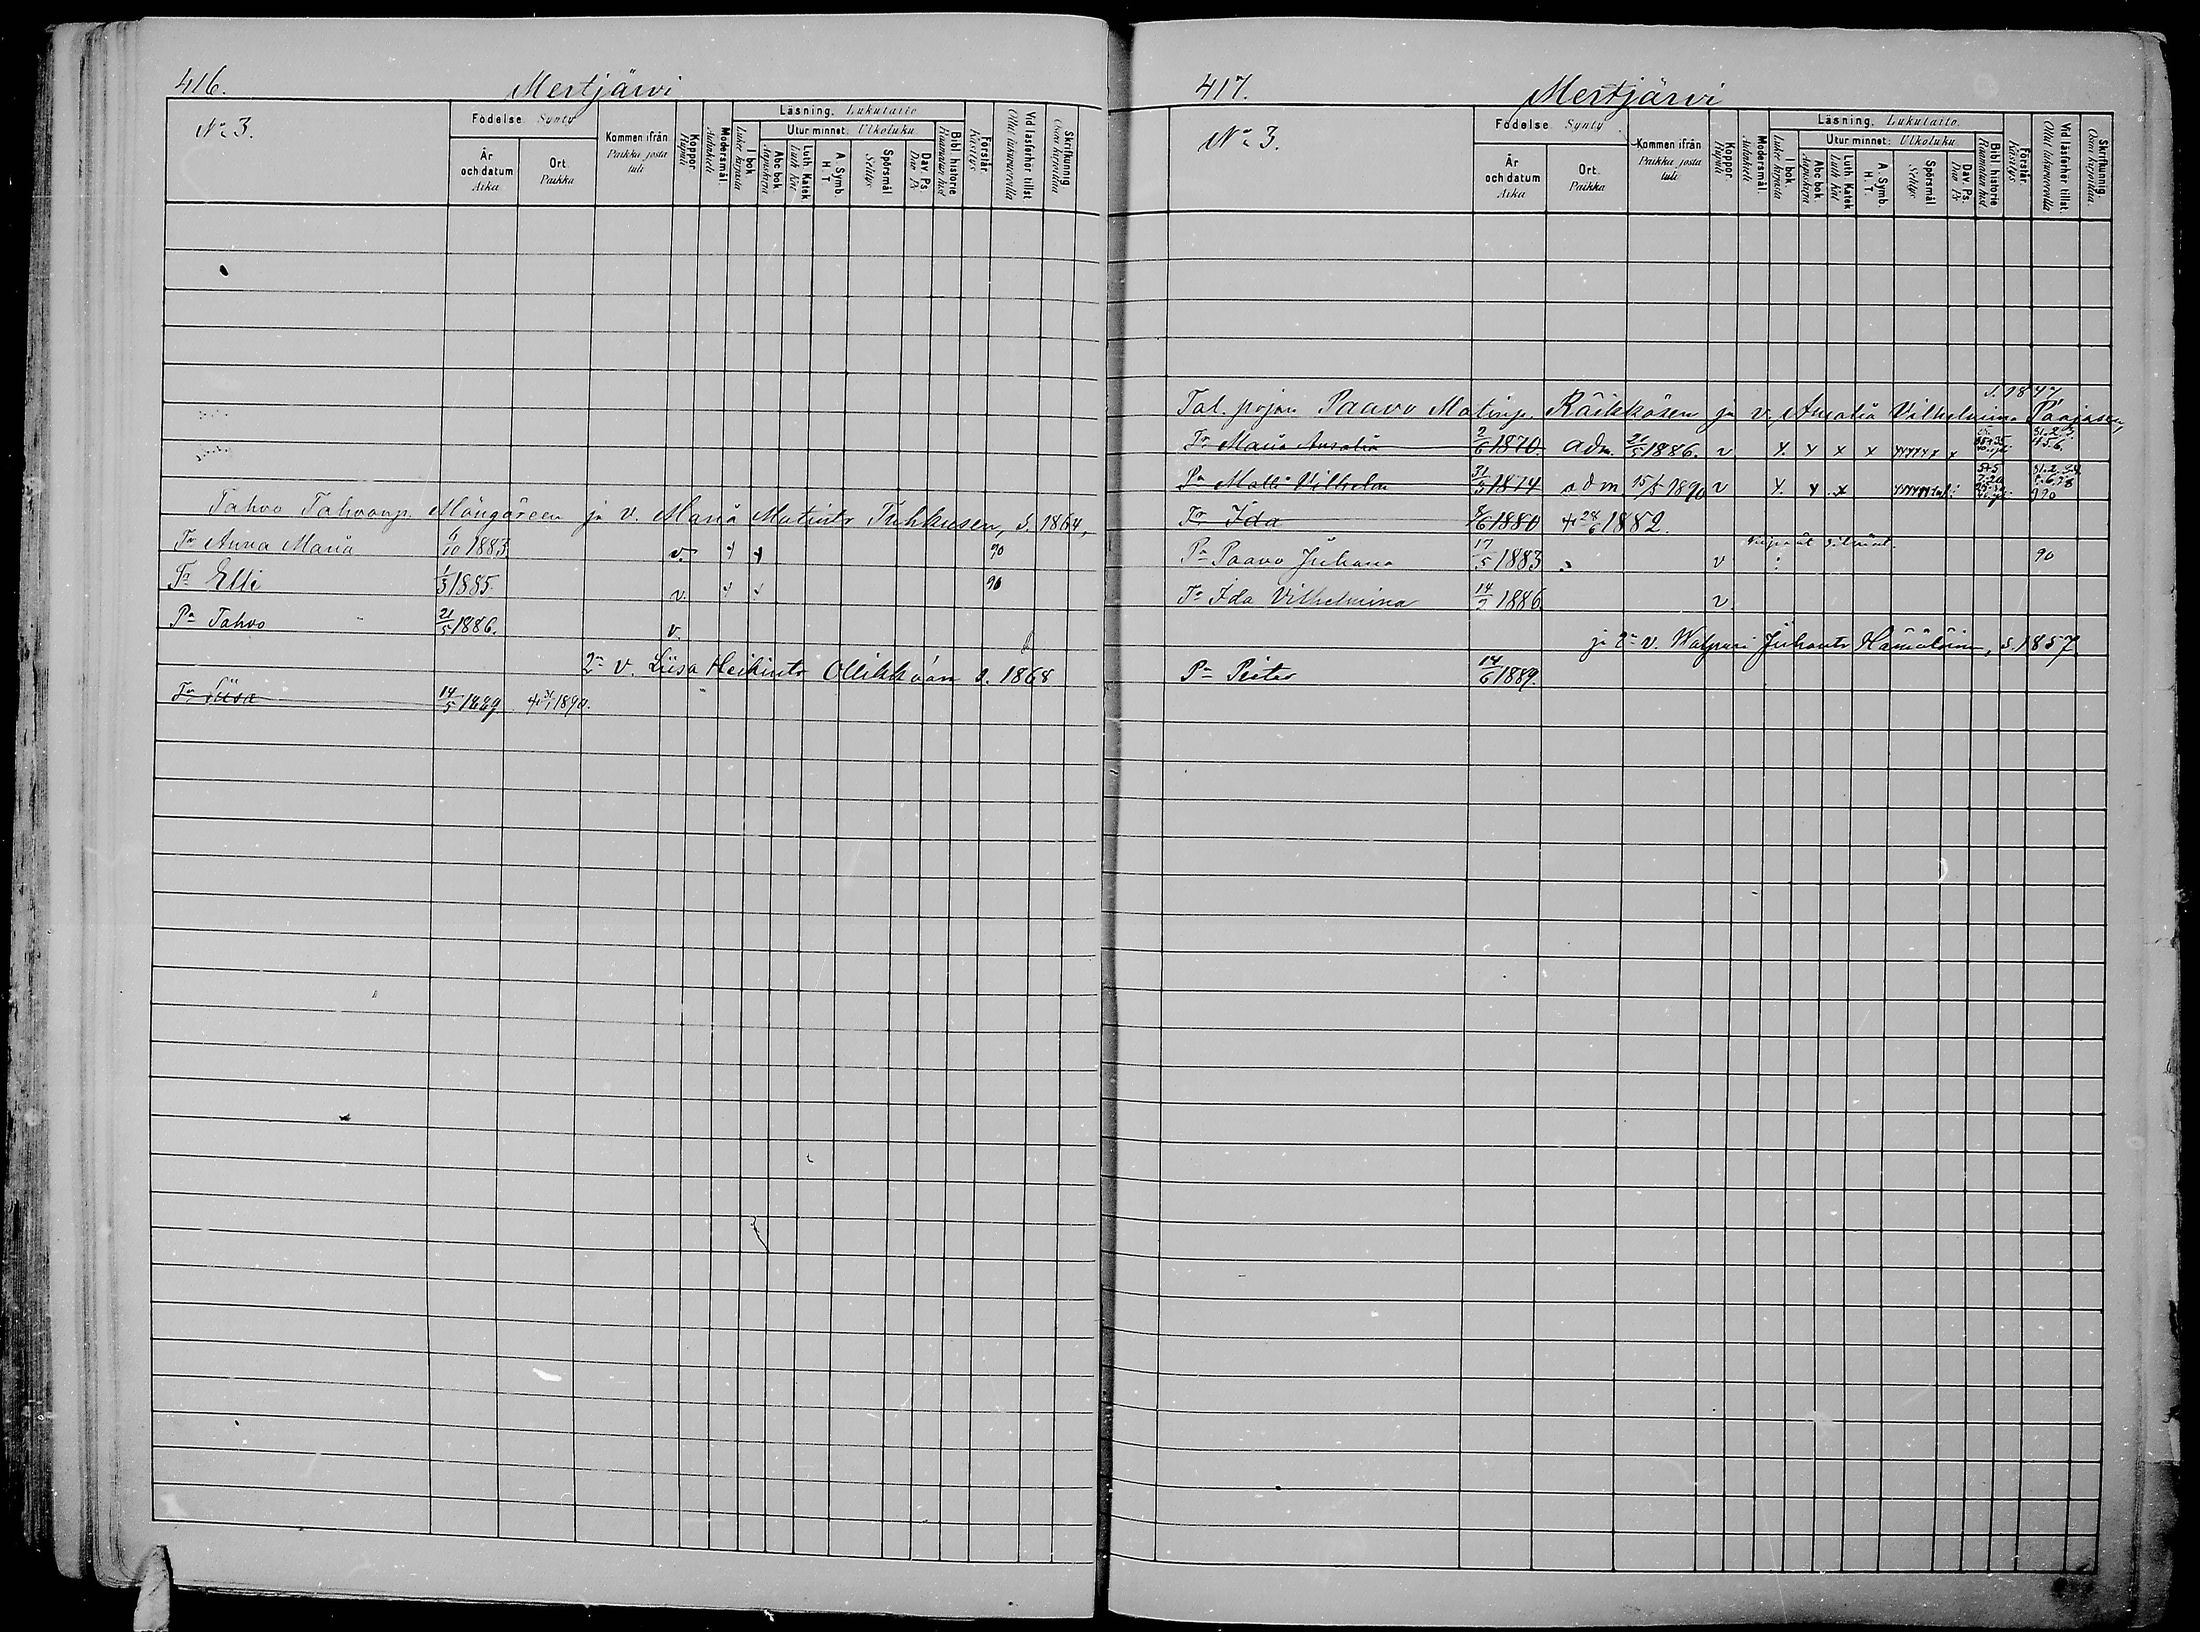 416.
Mertjärvi
No 3.
Födelse Synty
År och datum Aika
Ort. Paikka
Kommen ifrån Paikka josta tuli
Koppor. Rupuli
Modersmål. Äidinkieli
Läsning. Lukutaito
I bok. Lukee kirjasta
Utur minnet: Ulkoluku
Abc bok. Aapiskirja
Luth. Katek. Luth Kat
A. Symb. H. T.
Spörsmål Selitys
Dav. Ps. Dav Ps
Bibl historie Raamatun hist
Förstår. Käsitys
Vid läsförhör tillst Ollut lukuvuorolla
Skrifkunnig Osaa kirjoittaa
Tahvo Tahvonp. ja v. Maria Matintr Tuhkusen, s. 1864,
Tr Anna Maria 1883 v. 90
Tr Elli 1/3 1885. v. 90
Pa Tahvo 21/5 1886. v.
2n v. Liisa Heikintr s. 1868
Tr Liisa 14/5 1889 31/1 1890.
417.
Mertjärvi
No 3.
Födelse Synty
År och datum Aika
Ort. Paikka
Kommen ifrån Paikka josta tuli
Koppor. Rupuli
Modersmål. Äidinkieli
Läsning. Lukutaito
I bok. Lukee kirjasta
Utur minnet: Ulkoluku
Abc bok. Aapiskirja
Luth. Katek. Luth Kat
A. Symb. H. T.
Spörsmål Selitys
Dav. Ps. Dav Ps
Bibl historie Raamatun hist
Förstår. Käsitys
Vid läsförhör tillst. Ollut lukuvuorolla
Skrifkunnig. Osaa kirjoittaa.
s. 1847
Tal. pojan Paavo Matinp. Räikkösen ja v. Amalia Vilhelmina Paajasen,
Tr Maria Amalia 2/6 1870. adm. 21/5 1886. v
Pa Matti Vilhelm 31/3 1874 adm 15/5 1890 v
Tr Ida 8/6 1880 28/6 1882.
Pa Paavo Juhana 17/5 1883 v 90
Tr Ida Vilhelmina 14/2 1886 v
ja 2n v. Walpuri Juhantr Hämäläinen, s. 1857
Pa Pieter 14/6 1889.